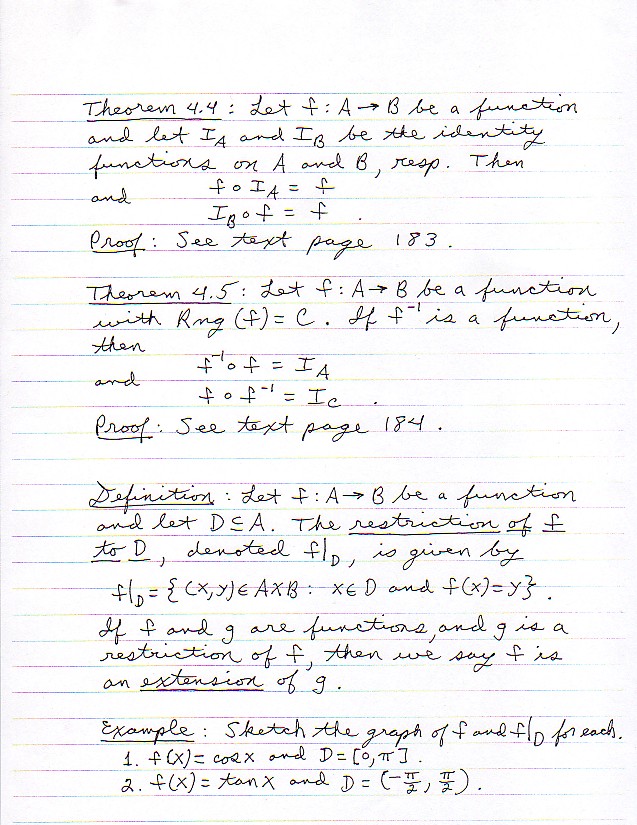 Theorem 4.4 : Let f : A → B be a function
and let I_A and I_B be the identity
functions on A and B, resp. Then
f ∘ I_A = f
and
I_B ∘ f = f .
Proof : See text page 183.
Theorem 4.5 : Let f : A → B be a function
with Rng (f) = C. If f⁻¹ is a function,
then
f⁻¹ ∘ f = I_A
and
f ∘ f⁻¹ = I_C .
Proof : See text page 184.
Definition : Let f : A → B be a function
and let D ⊆ A. The restriction of f
to D, denoted f|_D, is given by
f|_D = { (x,y) ∈ A×B : x ∈ D and f(x) = y } .
If f and g are functions, and g is a
restriction of f, then we say f is
an extension of g.
Example : Sketch the graph of f and f|_D for each.
1. f(x) = cos x and D = [0, π] .
2. f(x) = tan x and D = (-π/2, π/2) .